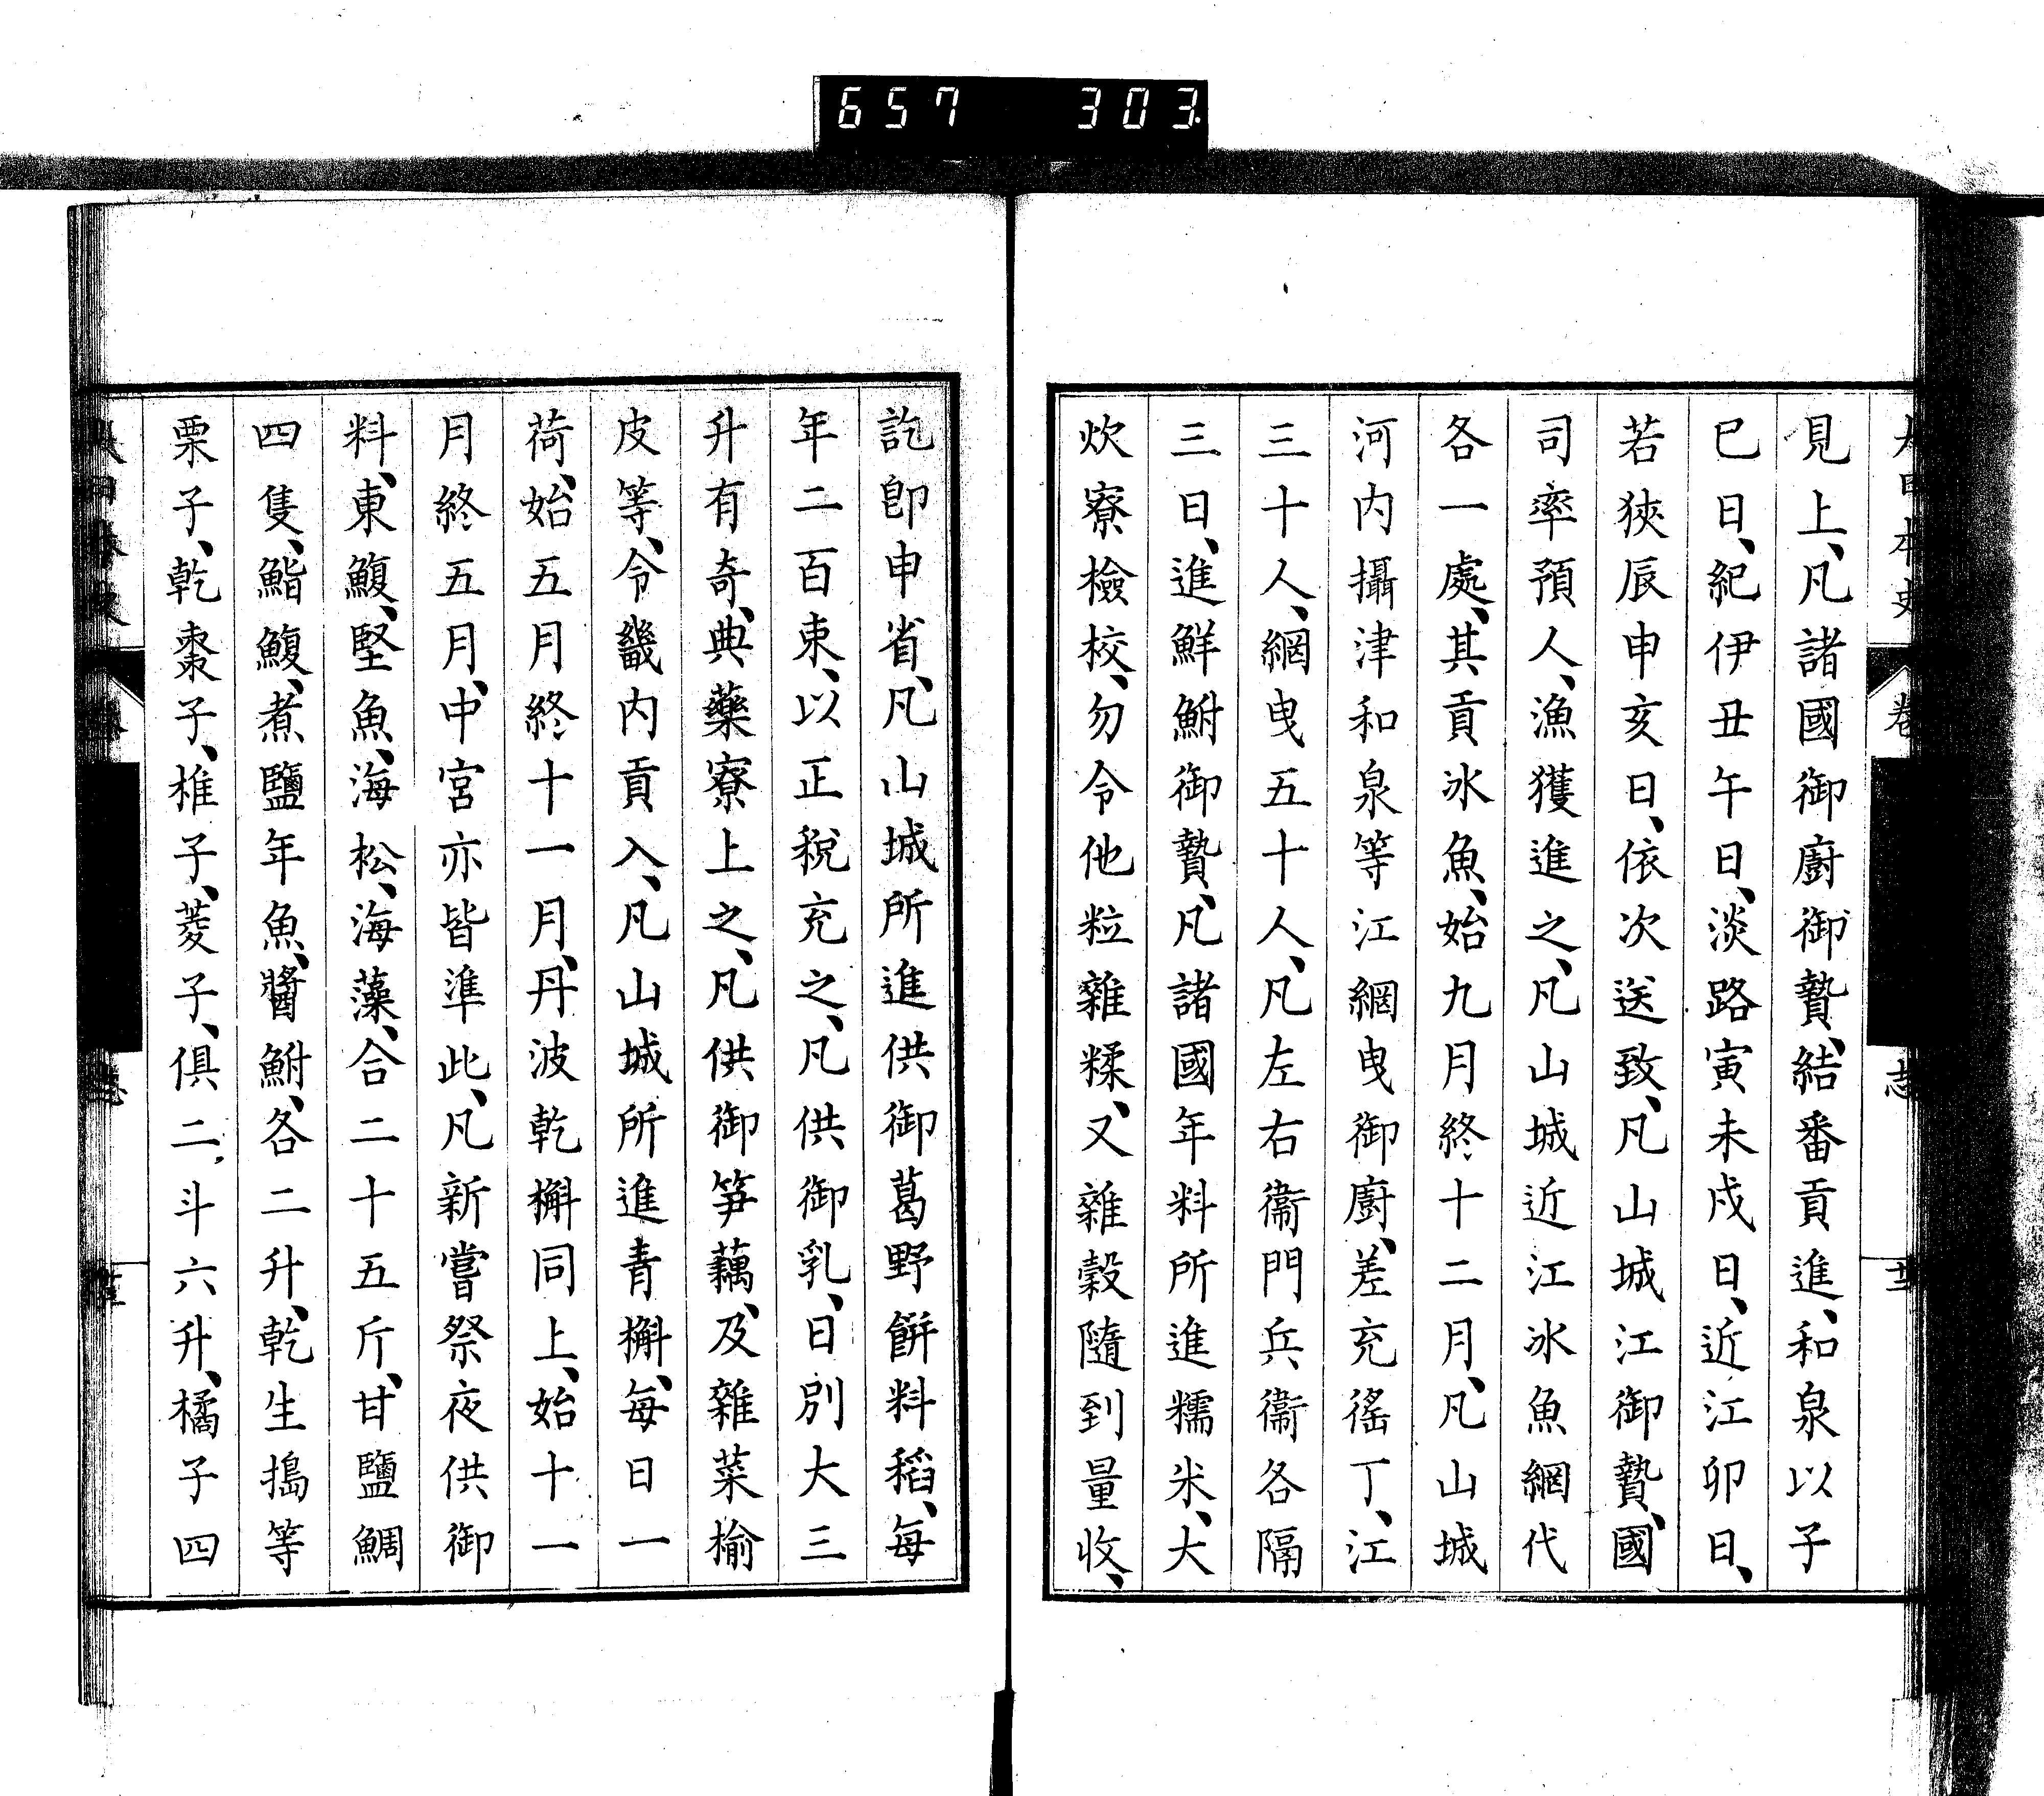 657 303
見上、凡諸國御廚御贄、結番貢進、和泉以子
巳日、紀伊丑午日、淡路寅未戌日、近江卯日、
若狹辰申亥日、依次送致、凡山城江御贄、國
司率預人、漁獲進之、凡山城近江氷魚網代
各一處、其貢氷魚、始九月終十二月、凡山城
河内攝津和泉等江網曳御廚、差充徭丁、江
三十人、網曳五十人、凡左右衞門兵衞各隔
三日、進鮮鮒御贄、凡諸國年料所進糯米、大
炊寮檢校、勿令他粒雜糅、又雜穀隨到量收、
訖卽申省、凡山城所進供御葛野餠料稻、每
年二百束、以正稅充之、凡供御乳、日別大三
升有奇、典藥寮上之、凡供御笋藕、及雜菜楡
皮等、令畿内貢入、凡山城所進青槲、每日一
荷、始五月終十一月、丹波乾槲同上、始十一
月終五月、中宮亦皆準此、凡新嘗祭夜供御
料、東鰒、堅魚、海松、海藻、合二十五斤、甘鹽鯛
四隻、鮨鰒、煮鹽年魚、醬鮒、各二升、乾生搗等
栗子、乾棗子、椎子、菱子、俱二斗六升、橘子四